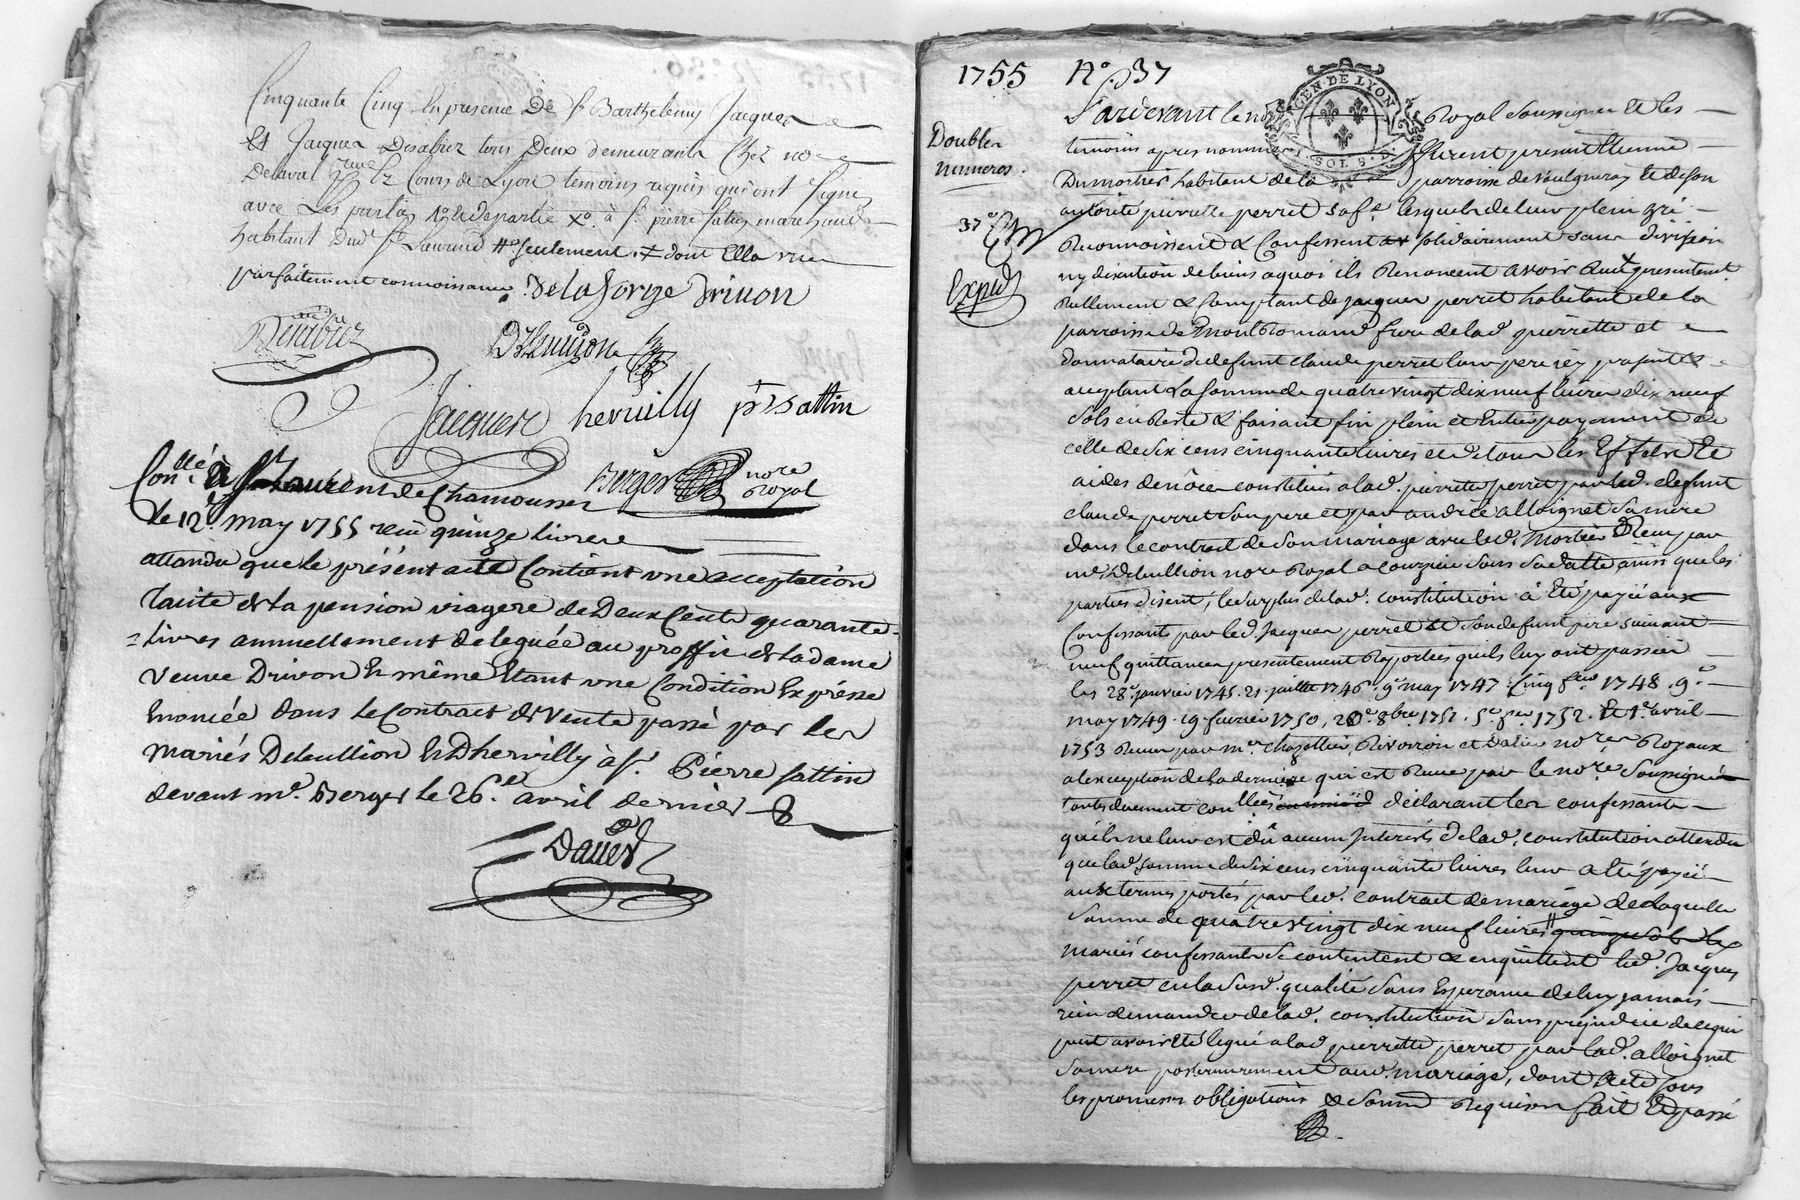 Cinquante Cinq En presence De Sr Barthelemy Jacques
Et Jacques Desabiez tous Deux demeurants Chez
Delaval rue Cours de Lyon temoins requis qui ont signé
avec Les parties à St pierre Sattin marechand
habitant dud St Laurend seulement. dont Ella
parfaitement connoissance. De la forge Drivon
Desabiez
Jacques hervilly prs Sattin
Berger nore
Royal
Conllé à St Laurent de Chamousset
Le 12 may 1755 reçu quinze livres
attandu que le présent acte Contient une acceptation
tacite de La pension viagere de Deux Cents quarante
Livres annuellement deleguée au proffit de La dame
veuve Drivon Et même Etant une Condition Expresse
Enoncée dans Le Contract de Vente passé par Les
mariés Deleullion Et Dhervilly à Sr. Pierre Sattin
devant me. Berger le 26e avril dernier
1755 No. 37
Doubles
numeros.
37e
Exped
GEN. DE LYON
SOLS
Pardevant le Royal Soussigné Et les
temoins apres nommés furent presents Etienne
Dumortier habitant de la parroisse de vaulgneray Et de son
autorité pierrette perret sa fe lesquels de leur plein gré
Reconnoissent & Confessent solidairement sans division
ny discution de biens aquoi ils Renoncent avoir presentement
Reellement & Comptant de jacques perret habitant de la
parroisse de Montromand frere de lad pierrette et
donnataire de defunt claude perret leur pere icy present &
acceptant La somme de quatre vingt dix neuf livres dix neuf
sols en Reste & faisant fin plein et Entier payement de
celle de six cens cinquante livres et de tous les Effets Et
aides de nôces constitués a lad. pierrette perret par led. defunt
claude perret son pere et par andrée alloignet sa mere
dans le contrat de son mariage avec led. mortier Reçu par
me. Deleullion nore Royal a courzieu sous sa datte ainsi que les
parties disent, le surplus de lad. constitution à Eté payé aux
Confessants par led. jacques perret et son defunt pere suivant
neuf quittances presentement Raportées quils luy ont passées
les 28e janvier 1745. 21 juillet 1746. 9e may 1747 Cinq 1748. 9e
may 1749. 19 fevrier 1750, 20e 8bre 1751. 5e 1752. Et 1e avril
1753 Reçues par mes. chazottier, Rivoiron et nores Royaux
a lexception de la derniere qui est Reçue par le nore. Soussigné
toutes duement conllées declarant les confessants
quil ne leur est dû aucun Interêts de lad. constitution attendu
que lad somme de six cens cinquante livres leur a été payée
aux termes portés par led. contrat de mariage de laquelle
somme de quatre vingt dix neuf livres quinze sols les
mariés confessants se contentent & en quittent led. Jacques
perret en la susd. qualité sans Esperance de luy jamais
rien demander de lad. constitution sans prejudice de ce qui
peut avoir été legué a lad pierrette perret par lad. alloignet
sa mere posterieurement aud. mariage, dont acte sous
les promesses obligations & soumd Requises fait Et passé